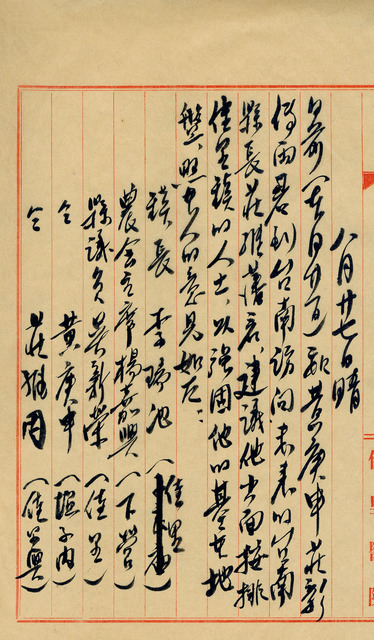 八月廿七日晴
日前(本月廿四日)和黃庚申莊彩
得兩君到台南訪問未來的台南
縣長莊維藩君建議他出面安排
佳里鎮的人士，以強固他的基本地
盤，照本人的意見如左：
鎮長　李瑞池(佳里)
農會主席楊嘉興(下營)
縣議員吳新榮(佳里)
仝　黃庚申(塭子內)
仝　莊維周(佳里興)
佳里醫院